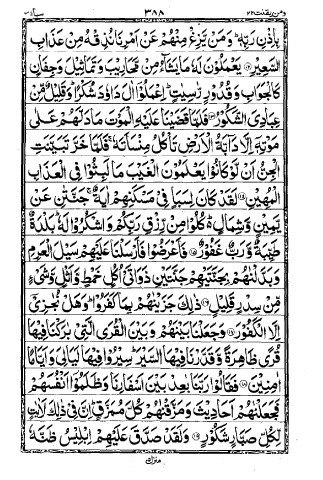 ومن یقنت ۲۲ ۳۸۸ سبا ۳۴
بِاِذْنِ رَبِّهٖ ؕ وَمَنْ یَّزِغْ مِنْهُمْ عَنْ اَمْرِنَا نُذِقْهُ مِنْ عَذَابِ
السَّعِیْرِ ﴿۱۲﴾ یَعْمَلُوْنَ لَهٗ مَا یَشَآءُ مِنْ مَّحَارِیْبَ وَتَمَاثِیْلَ وَجِفَانٍ
كَالْجَوَابِ وَقُدُوْرٍ رّٰسِیٰتٍ ؕ اِعْمَلُوْۤا اٰلَ دَاوٗدَ شُكْرًا ؕ وَقَلِیْلٌ مِّنْ
عِبَادِیَ الشَّكُوْرُ ﴿۱۳﴾ فَلَمَّا قَضَیْنَا عَلَیْهِ الْمَوْتَ مَا دَلَّهُمْ عَلٰی
مَوْتِهٖۤ اِلَّا دَآبَّةُ الْاَرْضِ تَاْكُلُ مِنْسَاَتَهٗ ۚ فَلَمَّا خَرَّ تَبَیَّنَتِ
الْجِنُّ اَنْ لَّوْ كَانُوْا یَعْلَمُوْنَ الْغَیْبَ مَا لَبِثُوْا فِی الْعَذَابِ
الْمُهِیْنِ ﴿۱۴﴾ لَقَدْ كَانَ لِسَبَاٍ فِیْ مَسْكَنِهِمْ اٰیَةٌ ۚ جَنَّتٰنِ عَنْ
یَّمِیْنٍ وَّشِمَالٍ ؕ كُلُوْا مِنْ رِّزْقِ رَبِّكُمْ وَاشْكُرُوْا لَهٗ ؕ بَلْدَةٌ
طَیِّبَةٌ وَّرَبٌّ غَفُوْرٌ ﴿۱۵﴾ فَاَعْرَضُوْا فَاَرْسَلْنَا عَلَیْهِمْ سَیْلَ الْعَرِمِ
وَبَدَّلْنٰهُمْ بِجَنَّتَیْهِمْ جَنَّتَیْنِ ذَوَاتَیْ اُكُلٍ خَمْطٍ وَّاَثْلٍ وَّشَیْءٍ
مِّنْ سِدْرٍ قَلِیْلٍ ﴿۱۶﴾ ذٰلِكَ جَزَیْنٰهُمْ بِمَا كَفَرُوْا ؕ وَهَلْ نُجٰزِیْۤ
اِلَّا الْكَفُوْرَ ﴿۱۷﴾ وَجَعَلْنَا بَیْنَهُمْ وَبَیْنَ الْقُرَی الَّتِیْ بٰرَكْنَا فِیْهَا
قُرًی ظَاهِرَةً وَّقَدَّرْنَا فِیْهَا السَّیْرَ ؕ سِیْرُوْا فِیْهَا لَیَالِیَ وَاَیَّامًا
اٰمِنِیْنَ ﴿۱۸﴾ فَقَالُوْا رَبَّنَا بٰعِدْ بَیْنَ اَسْفَارِنَا وَظَلَمُوْۤا اَنْفُسَهُمْ
فَجَعَلْنٰهُمْ اَحَادِیْثَ وَمَزَّقْنٰهُمْ كُلَّ مُمَزَّقٍ ؕ اِنَّ فِیْ ذٰلِكَ لَاٰیٰتٍ
لِّكُلِّ صَبَّارٍ شَكُوْرٍ ﴿۱۹﴾ وَلَقَدْ صَدَّقَ عَلَیْهِمْ اِبْلِیْسُ ظَنَّهٗ
منزل ۵